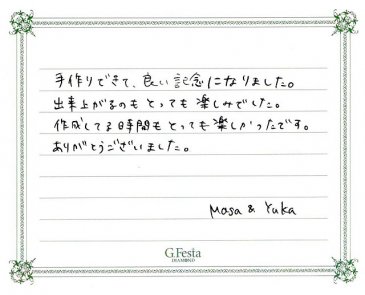 手作りできて、良い記念になりました。
出来上がるのもとっても楽しみでした。
作成してる時間もとっても楽しかったです。
ありがとうございました。
Masa & Yuka
G.Festa
DIAMOND